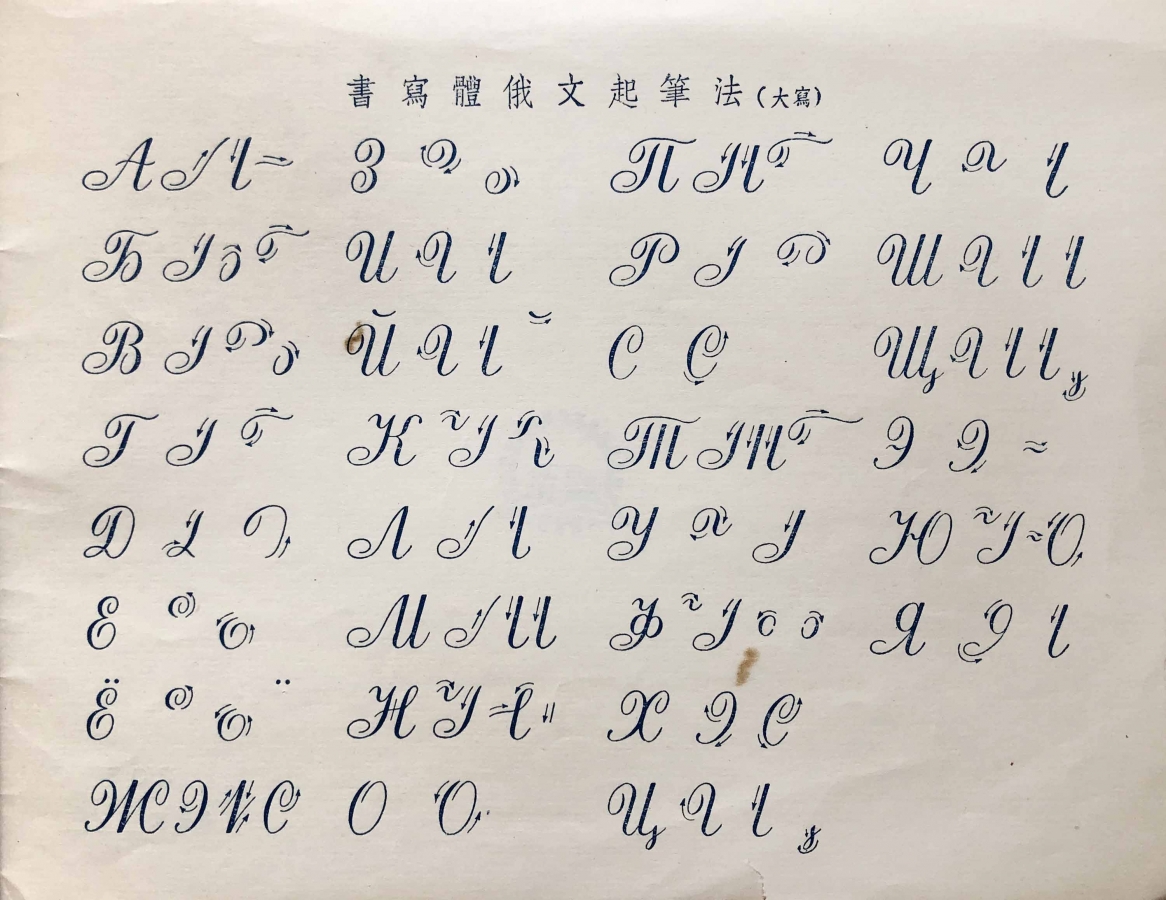 書寫體俄文起筆法(大寫)
А З П Ч
Б И Р Ш
В Й С Щ
Г К Т Э
Д Л У Ю
Е М Ф Я
Ё Н Х
Ж О Ц